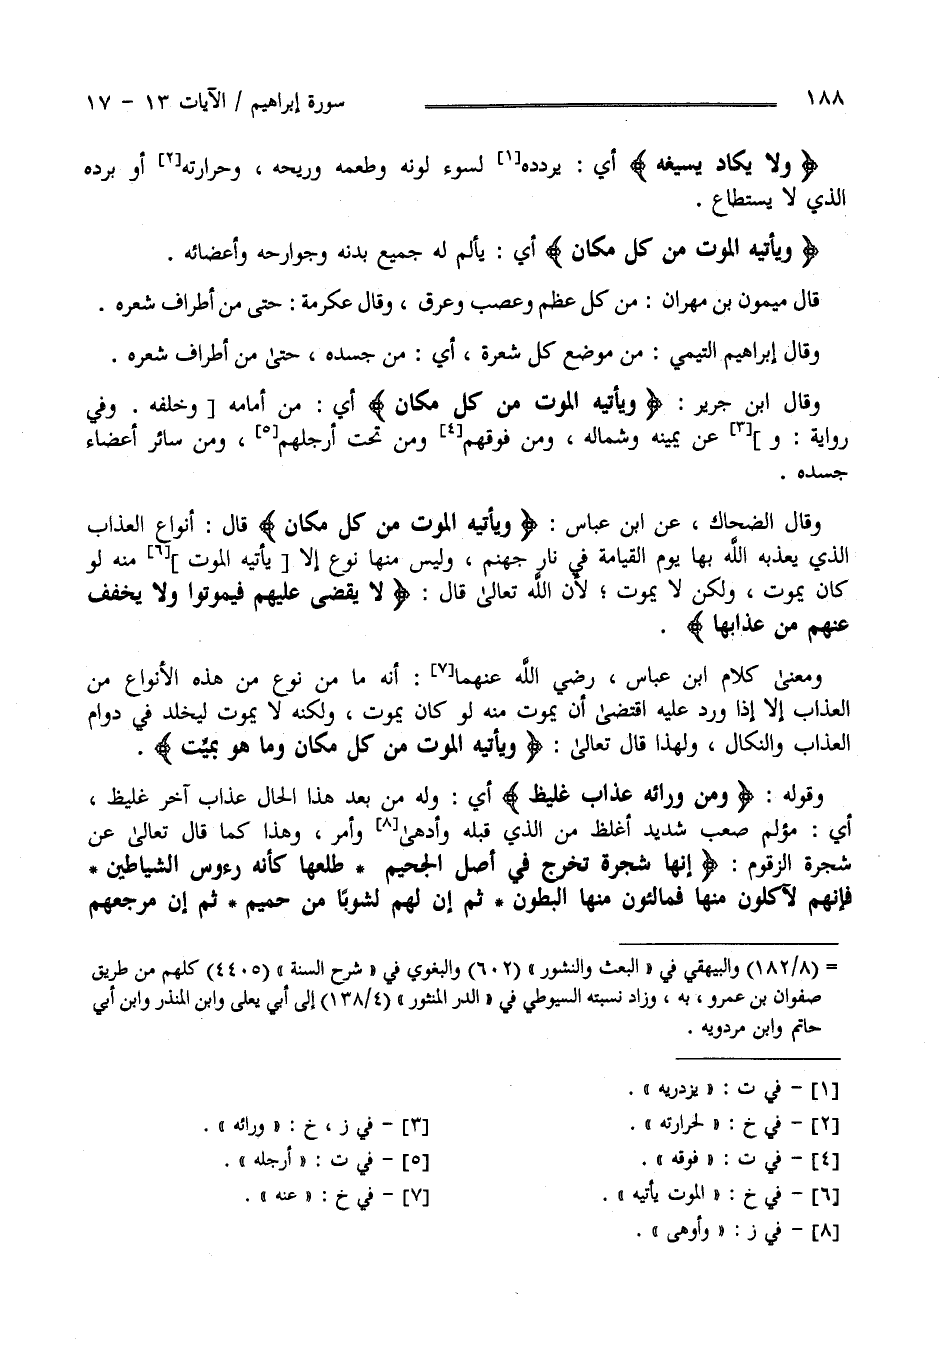 ١٨٨ سورة إبراهيم / الآيات ١٣ - ١٧
﴿ ولا يكاد يسيغه ﴾ أي : يردده[١] لسوء لونه وطعمه وريحه ، وحرارته[٢] أو برده
الذي لا يستطاع .
﴿ ويأتيه الموت من كل مكان ﴾ أي : يألم له جميع بدنه وجوارحه وأعضائه .
قال ميمون بن مهران : من كل عظم وعصب وعرق ، وقال عكرمة : حتى من أطراف شعره .
وقال إبراهيم التيمي : من موضع كل شعرة ، أي : من جسده ، حتىٰ من أطراف شعره .
وقال ابن جرير : ﴿ ويأتيه الموت من كل مكان ﴾ أي : من أمامه [ وخلفه . وفي
رواية : و ][٣] عن يمينه وشماله ، ومن فوقهم[٤] ومن تحت أرجلهم[٥] ، ومن سائر أعضاء
جسده .
وقال الضحاك ، عن ابن عباس : ﴿ ويأتيه الموت من كل مكان ﴾ قال : أنواع العذاب
الذي يعذبه اللَّه بها يوم القيامة في نار جهنم ، وليس منها نوع إلا [ يأتيه الموت ][٦] منه لو
كان يموت ، ولكن لا يموت ؛ لأن اللَّه تعالىٰ قال : ﴿ لا يقضى عليهم فيموتوا ولا يخفف
عنهم من عذابها ﴾ .
ومعنىٰ كلام ابن عباس ، رضي اللَّه عنهما[٧] : أنه ما من نوع من هذه الأنواع من
العذاب إلا إذا ورد عليه اقتضىٰ أن يموت منه لو كان يموت ، ولكنه لا يموت ليخلد في دوام
العذاب والنكال ، ولهذا قال تعالىٰ : ﴿ ويأتيه الموت من كل مكان وما هو بميِّت ﴾ .
وقوله : ﴿ ومن ورائه عذاب غليظ ﴾ أي : وله من بعد هذا الحال عذاب آخر غليظ ،
أي : مؤلم صعب شديد أغلظ من الذي قبله وأدهىٰ[٨] وأمر ، وهذا كما قال تعالىٰ عن
شجرة الزقوم : ﴿ إنها شجرة تخرج في أصل الجحيم * طلعها كأنه رءوس الشياطين *
فإنهم لآكلون منها فمالئون منها البطون * ثم إن لهم لشوبًا من حميم * ثم إن مرجعهم
= (١٨٢/٨) والبيهقي في « البعث والنشور » (٦٠٢) والبغوي في « شرح السنة » (٤٤٠٥) كلهم من طريق
صفوان بن عمرو ، به ، وزاد نسبته السيوطي في « الدر المنثور » (١٣٨/٤) إلى أبي يعلى وابن المنذر وابن أبي
حاتم وابن مردويه .
[١] - في ت : « يزدريه » .
[٢] - في خ : « لحرارته » . [٣] - في ز ، خ : « ورائه » .
[٤] - في ت : « فوقه » . [٥] - في ت : « أرجله » .
[٦] - في خ : « الموت يأتيه » . [٧] - في خ : « عنه » .
[٨] - في ز : « وأوهى » .